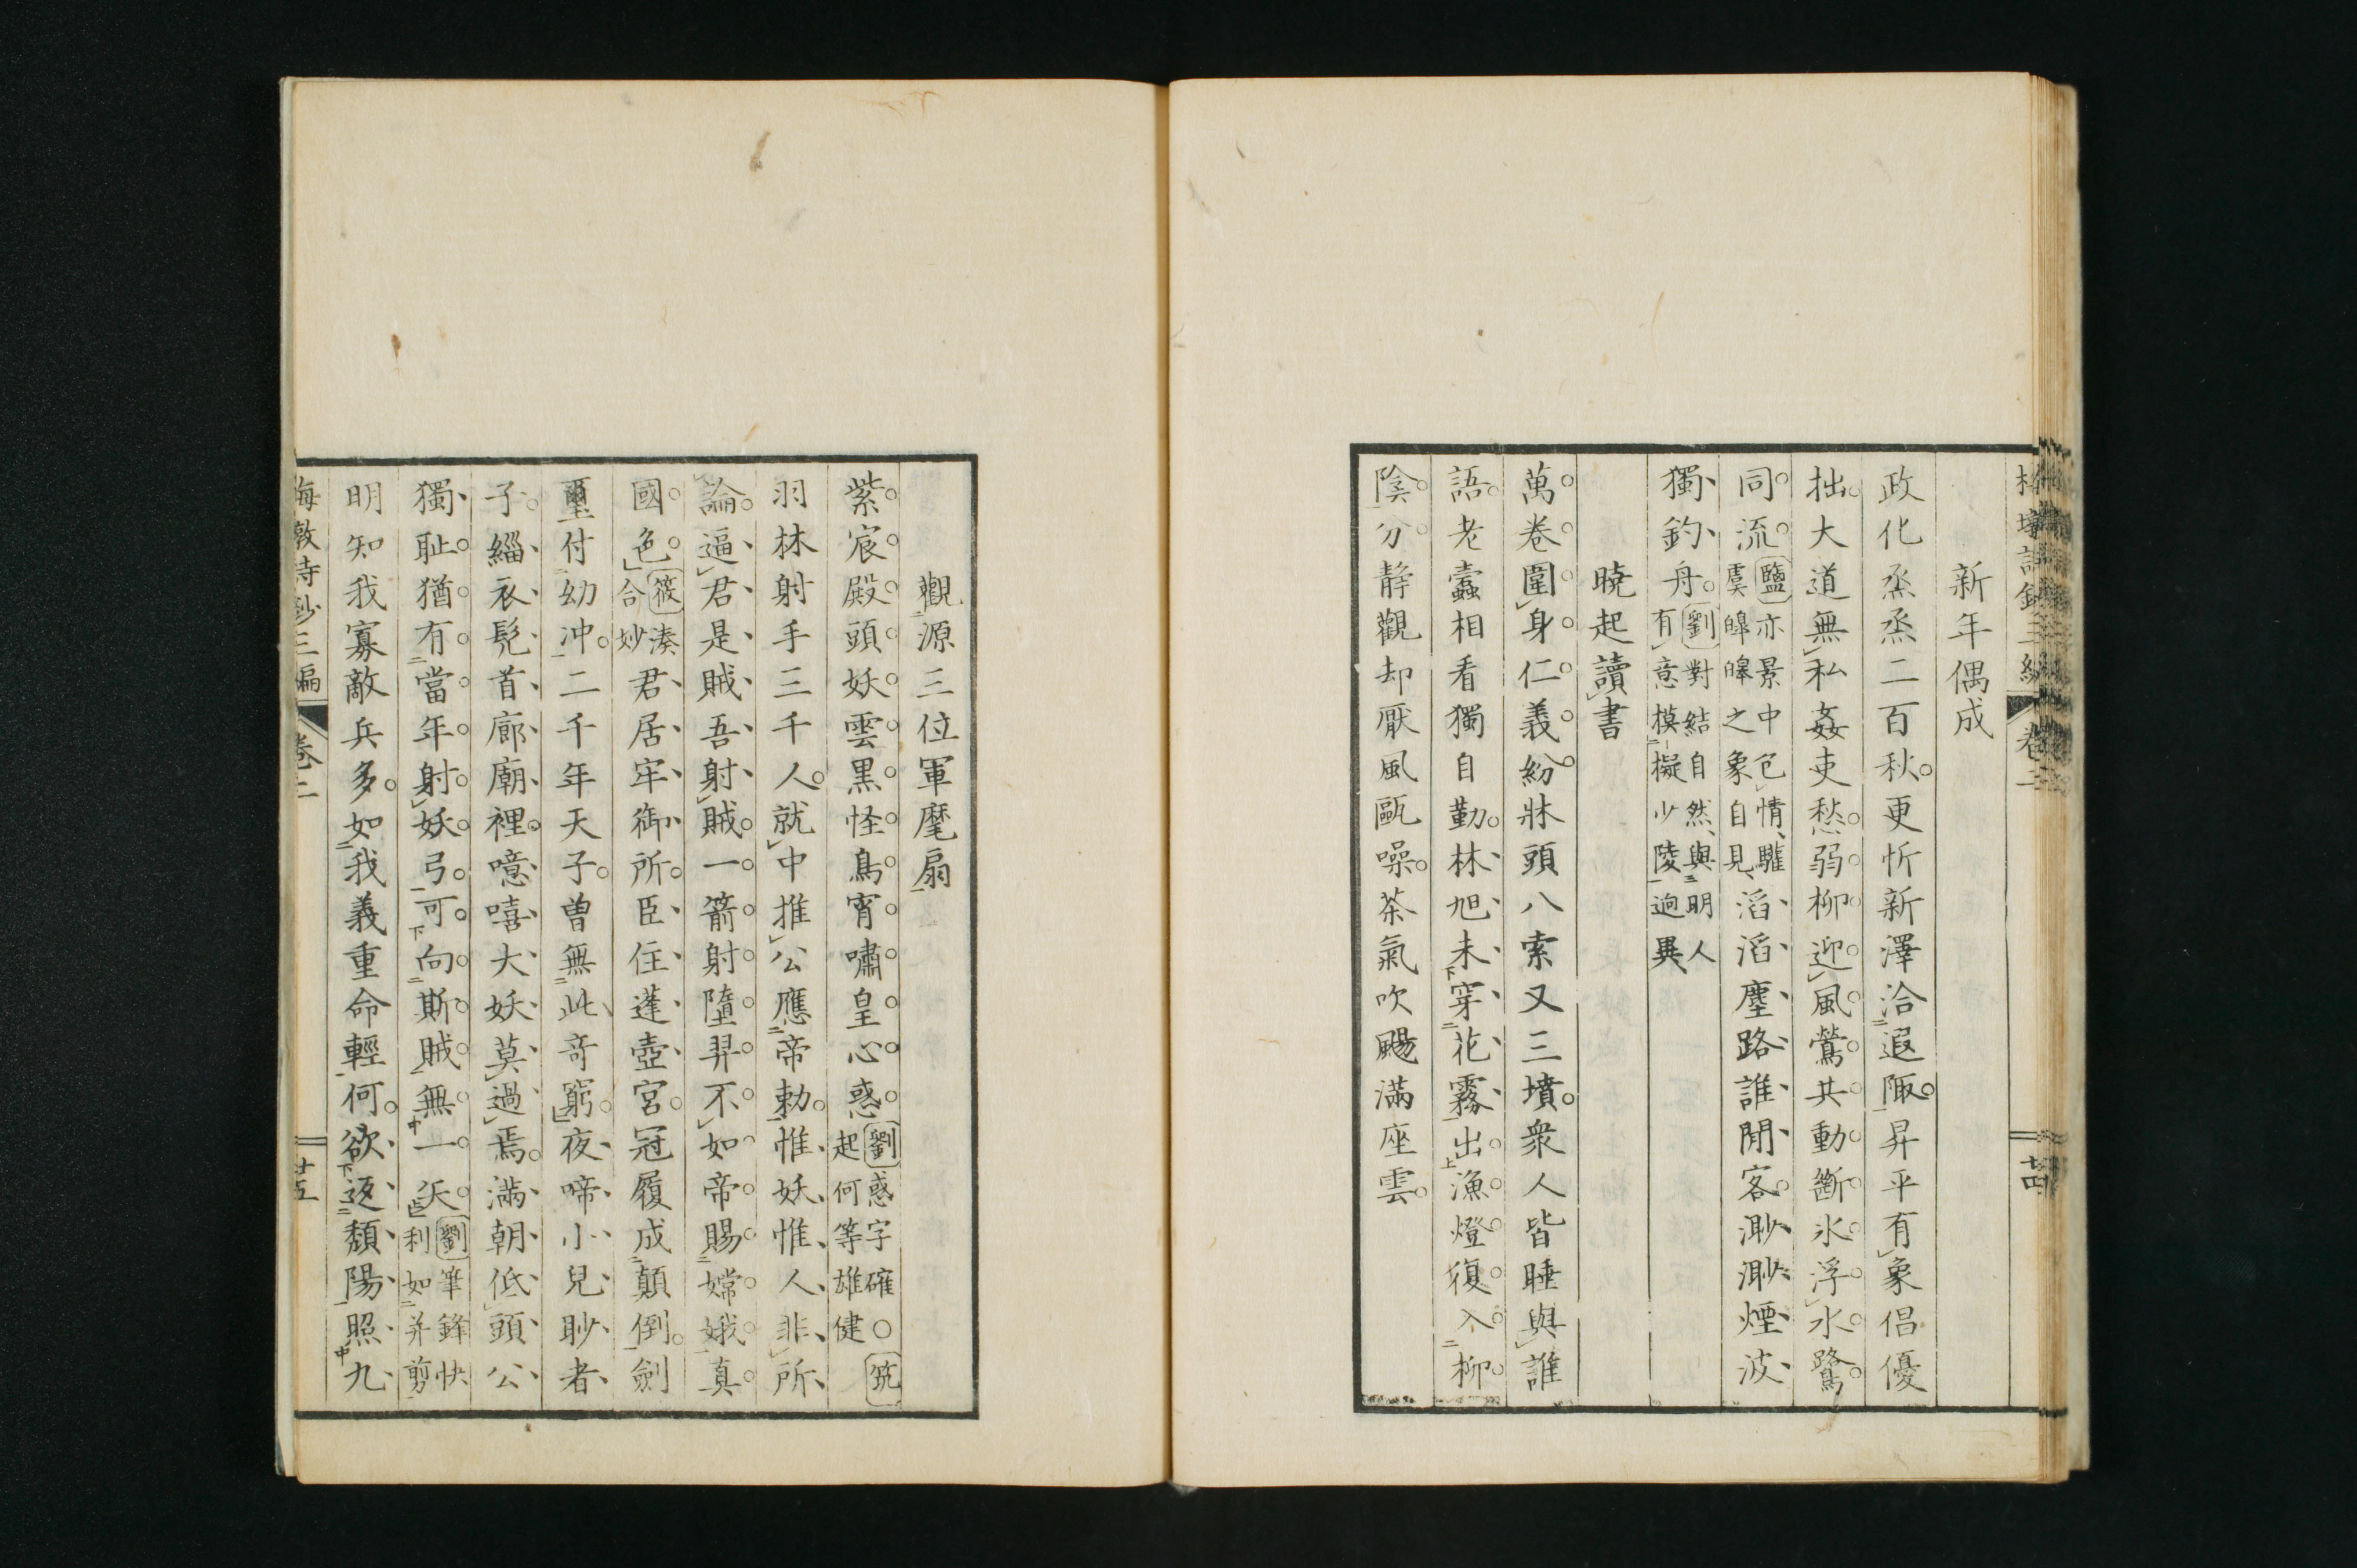 新年偶成
政化烝烝二百秋更忻新澤洽遐陬昇平有象倡優
拙大道無私姦吏愁弱柳迎風鶯共動斷氷浮水鷺
同流鹽亦景中包情驩虞皥皥之象自見滔滔塵路誰閒客渺渺煙波
獨釣舟劉對結自然與明人有意模擬少陵逈異
曉起讀書
萬卷圍身仁義紛牀頭八索又三墳衆人皆睡與誰
語老蠹相看獨自勤林旭未穿花霧出漁燈復入柳
陰分静觀却厭風甌噪茶氣吹颺滿座雲
觀源三位軍麾扇
紫宸殿頭妖雲黒怪鳥宵嘯皇心惑劉惑字確起何等雄健○筑
羽林射手三千人就中推公應帝勅惟妖惟人非所
論逼君是賊吾射賊一箭射墮羿不如帝賜嫦娥真
國色筱湊合妙君居牢御所臣住蓬壺宮冠履成顛倒劍
璽付幼冲二千年天子曽無此竒窮夜啼小兒眇者
子緇衣髠首廊廟裡噫嘻大妖莫過焉滿朝低頭公
獨耻猶有當年射妖弓可向斯賊無一矢劉筆鋒快利如并剪
明知我寡敵兵多如我義重命輕何欲返頽陽照九
梅墩詩鈔三編 卷二 廿五